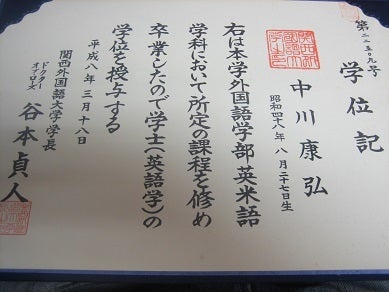 第二二五〇九号
学位記
中川康弘
昭和四十八年八月二十七日生
右は本学外国語学部英米語
学科において所定の課程を修め
卒業したので学士(英語学)の
学位を授与する
平成八年三月十八日
関西外国語大学学長
ドクターオブロズ
谷本貞人